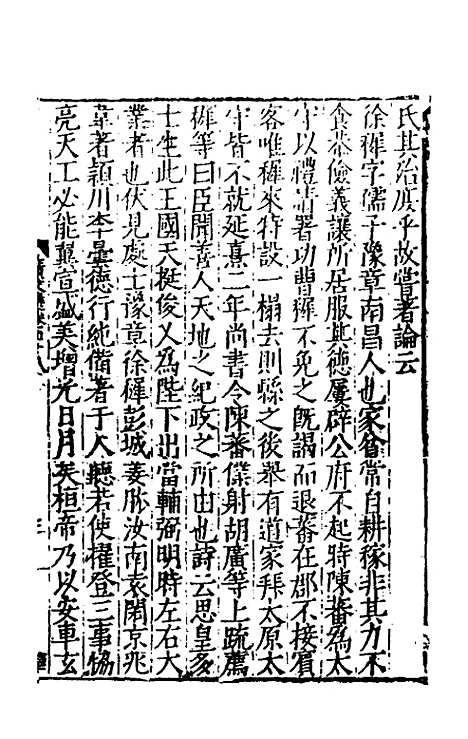 氏其治庶乎故嘗著論云
徐穉字孺子豫章南昌人也家貧常自耕稼非其力不
食恭儉義讓所居服其德屢辟公府不起時陳蕃為太
守以禮請署功曹穉不免之既謁而退蕃在郡不接賓
客唯穉來特設一榻去則縣之後舉有道家拜太原太
守皆不就延熹二年尚書令陳蕃僕射胡廣等上疏薦
穉等曰臣聞善人天地之紀政之所由也詩云思皇多
士生此王國天挺俊乂為陛下出當輔弼明時左右大
業者也伏見處士豫章徐穉彭城姜肱汝南袁閎京兆
韋著潁川李曇德行純備著于人聽若使擢登三事協
亮天工必能翼宣盛美增光日月矣桓帝乃以安車玄